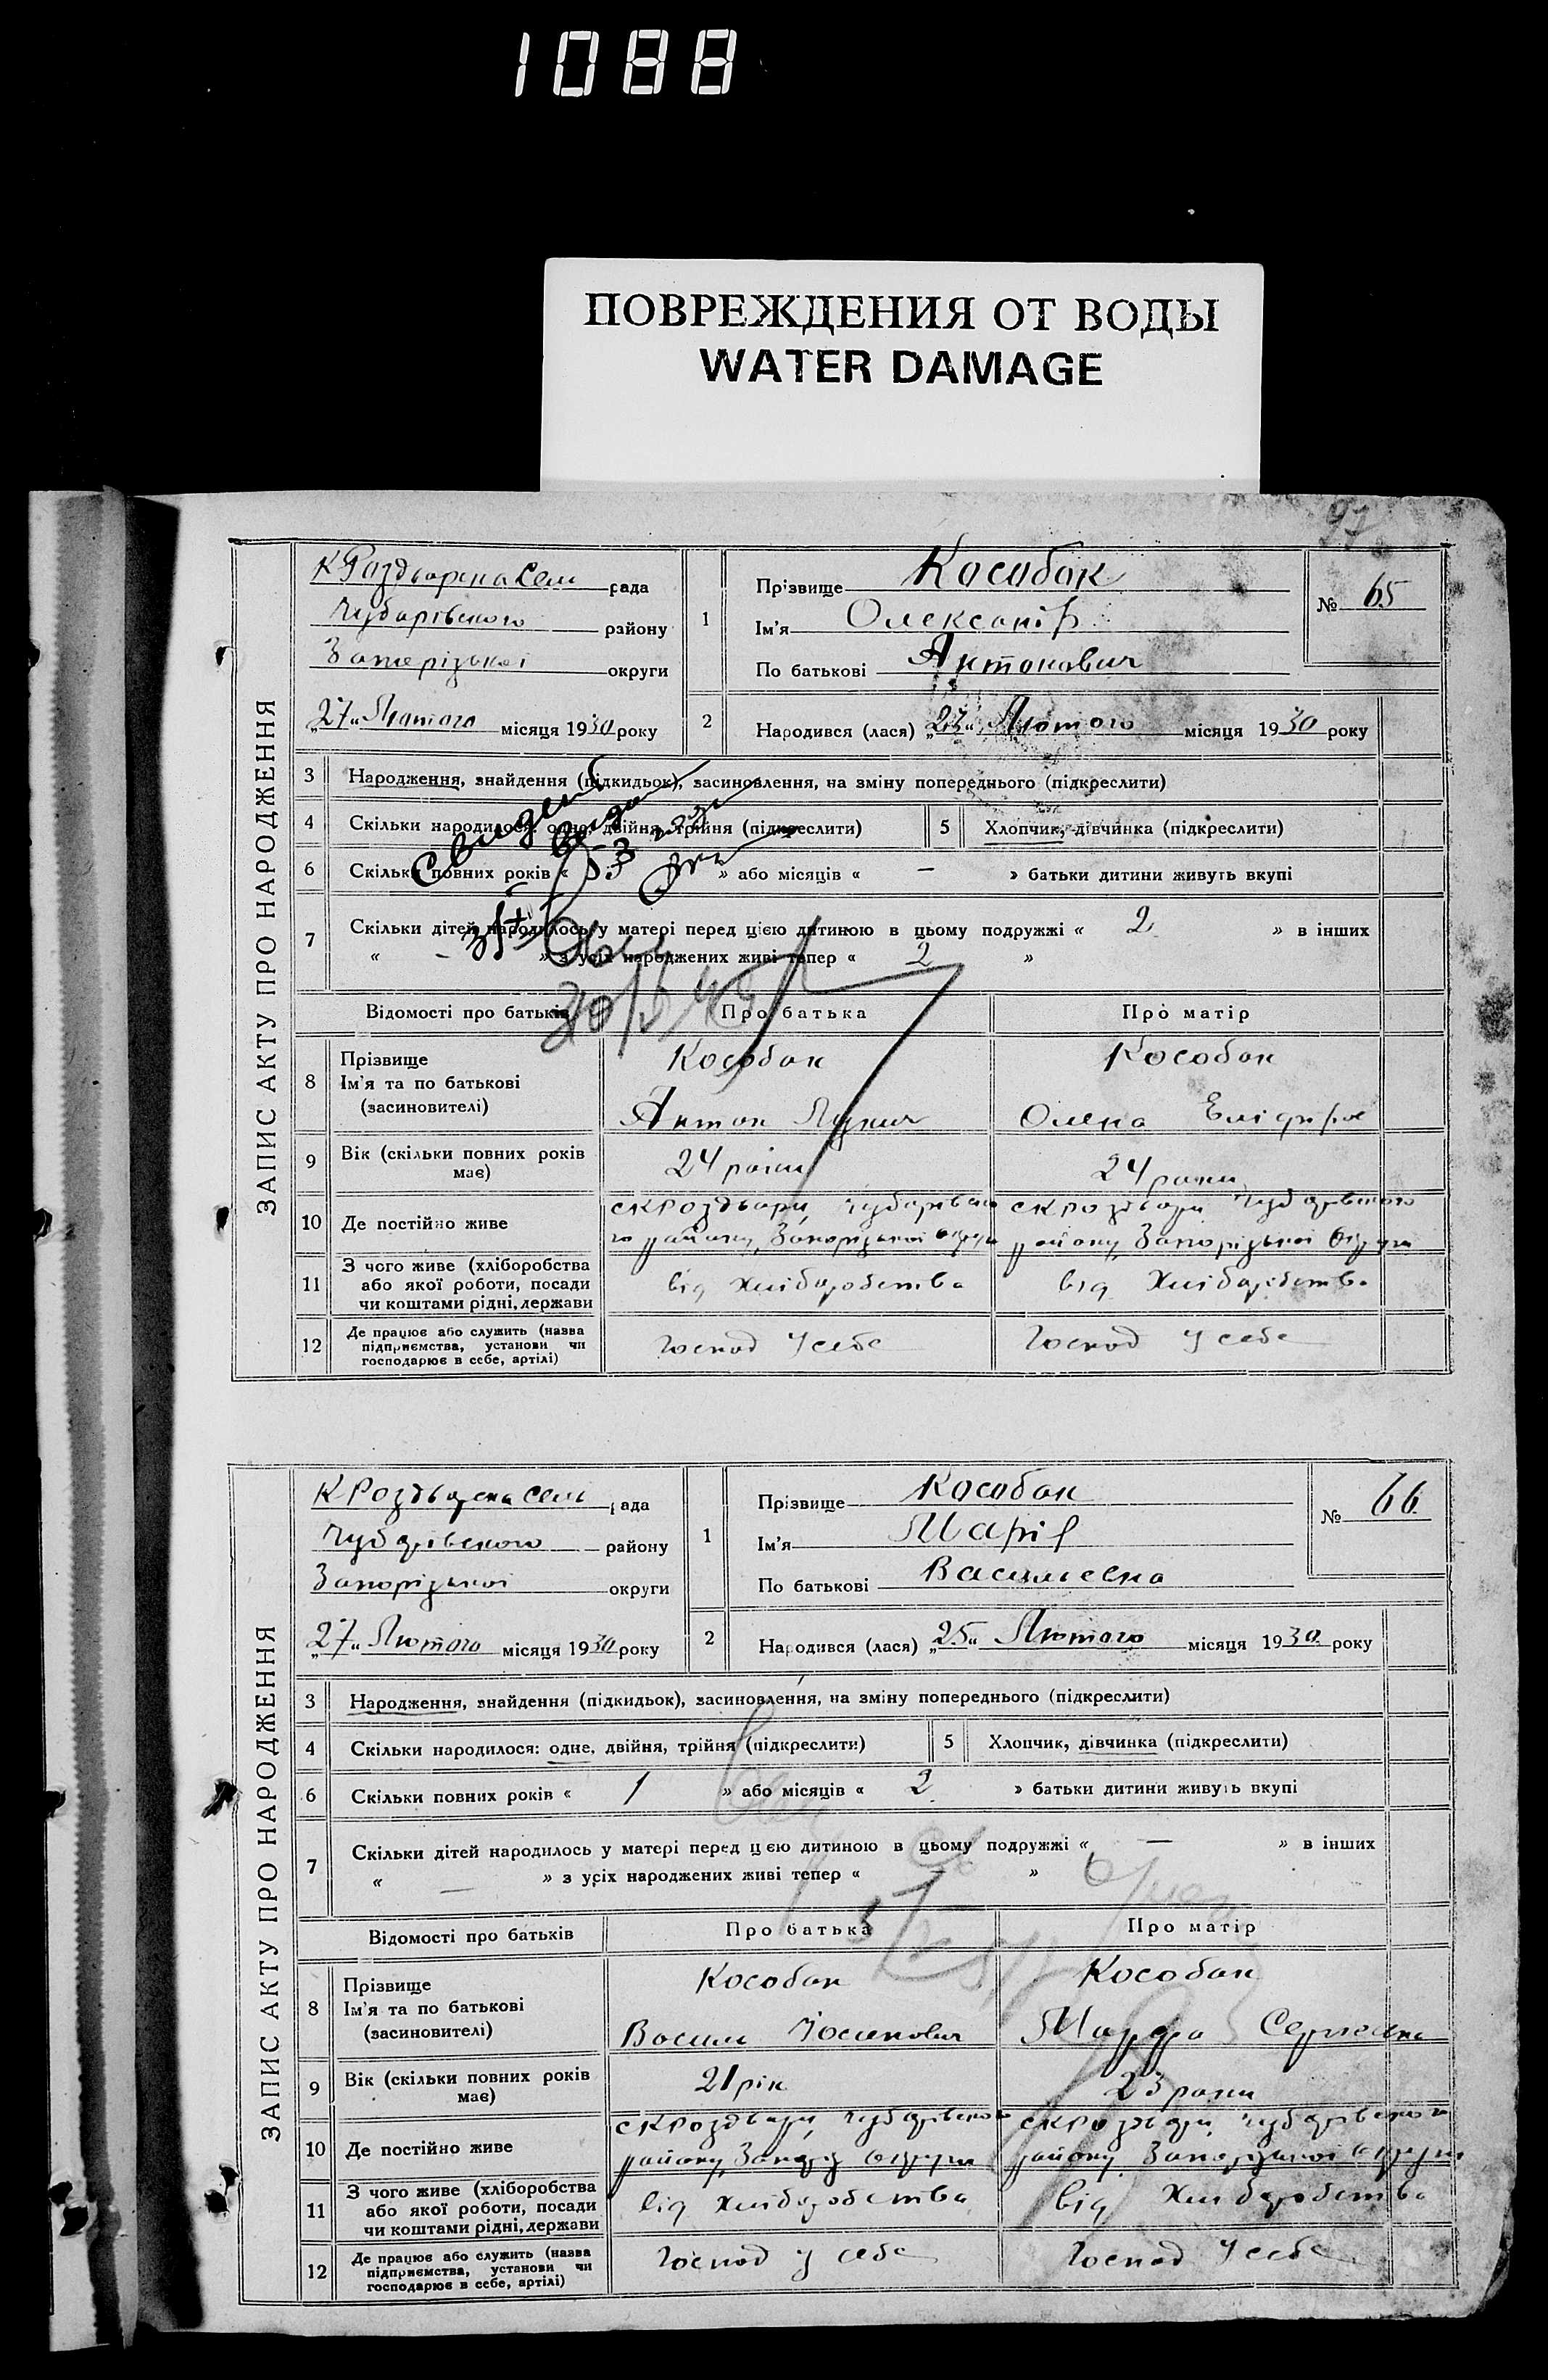 1088
ПОВРЕЖДЕНИЯ ОТ ВОДЫ
WATER DAMAGE
97
ЗАПИС АКТУ ПРО НАРОДЖЕННЯ
рада
Чубарівського району
Запорізької округи
„27“ Лютого місяця 1930 року
1
Прізвище Кособок
Ім'я Олександр
По батькові Антонович
№ 65
2
Народився (лася) „23“ Лютого місяця 1930 року
3 Народження, знайдення (підкидьок), засиновлення, на зміну попереднього (підкреслити)
4 Скільки народилося: одне, двійня, трійня (підкреслити)
5 Хлопчик, дівчинка (підкреслити)
6 Скільки повних років « » або місяців « — » батьки дитини живуть вкупі
7 Скільки дітей народилось у матері перед цією дитиною в цьому подружжі « 2 » в інших
« – » з усіх народжених живі тепер « 2 »
Відомості про батьків Про батька Про матір
8 Прізвище
Ім'я та по батькові
(засиновителі)
Кособок
Антон Лукич
Кособок
Олена
9 Вік (скільки повних років має) 24 роки 24 роки
10 Де постійно живе
Чубарівсько
го району, Запорізької округи
Чубарівського
району, Запорізької округи
11 З чого живе (хліборобства
або якої роботи, посади
чи коштами рідні, держави
від хліборобства від хліборобства
12 Де працює або служить (назва
підприємства, установи чи
господарює в себе, артілі)
Господ у себе Господ у себе
ЗАПИС АКТУ ПРО НАРОДЖЕННЯ
рада
Чубарівського району
Запорізької округи
„27“ Лютого місяця 1930 року
1
Прізвище Кособок
Ім'я Марія
По батькові Василевна
№ 66
2
Народився (лася) „25“ Лютого місяця 1930 року
3 Народження, знайдення (підкидьок), засиновлення, на зміну попереднього (підкреслити)
4 Скільки народилося: одне, двійня, трійня (підкреслити)
5 Хлопчик, дівчинка (підкреслити)
6 Скільки повних років « 1 » або місяців « 2 » батьки дитини живуть вкупі
7 Скільки дітей народилось у матері перед цією дитиною в цьому подружжі « — » в інших
« — » з усіх народжених живі тепер « – »
Відомості про батьків Про батька Про матір
8 Прізвище
Ім'я та по батькові
(засиновителі)
Кособок
Василь Йосипович
Кособок
9 Вік (скільки повних років має) 21 рік 23 роки
10 Де постійно живе
Чубарівського
району, Запоріз округи
Чубарівського
району Запорізької округи
11 З чого живе (хліборобства
або якої роботи, посади
чи коштами рідні, держави
від хліборобства від хліборобства
12 Де працює або служить (назва
підприємства, установи чи
господарює в себе, артілі)
Господ у себе Господ у себе